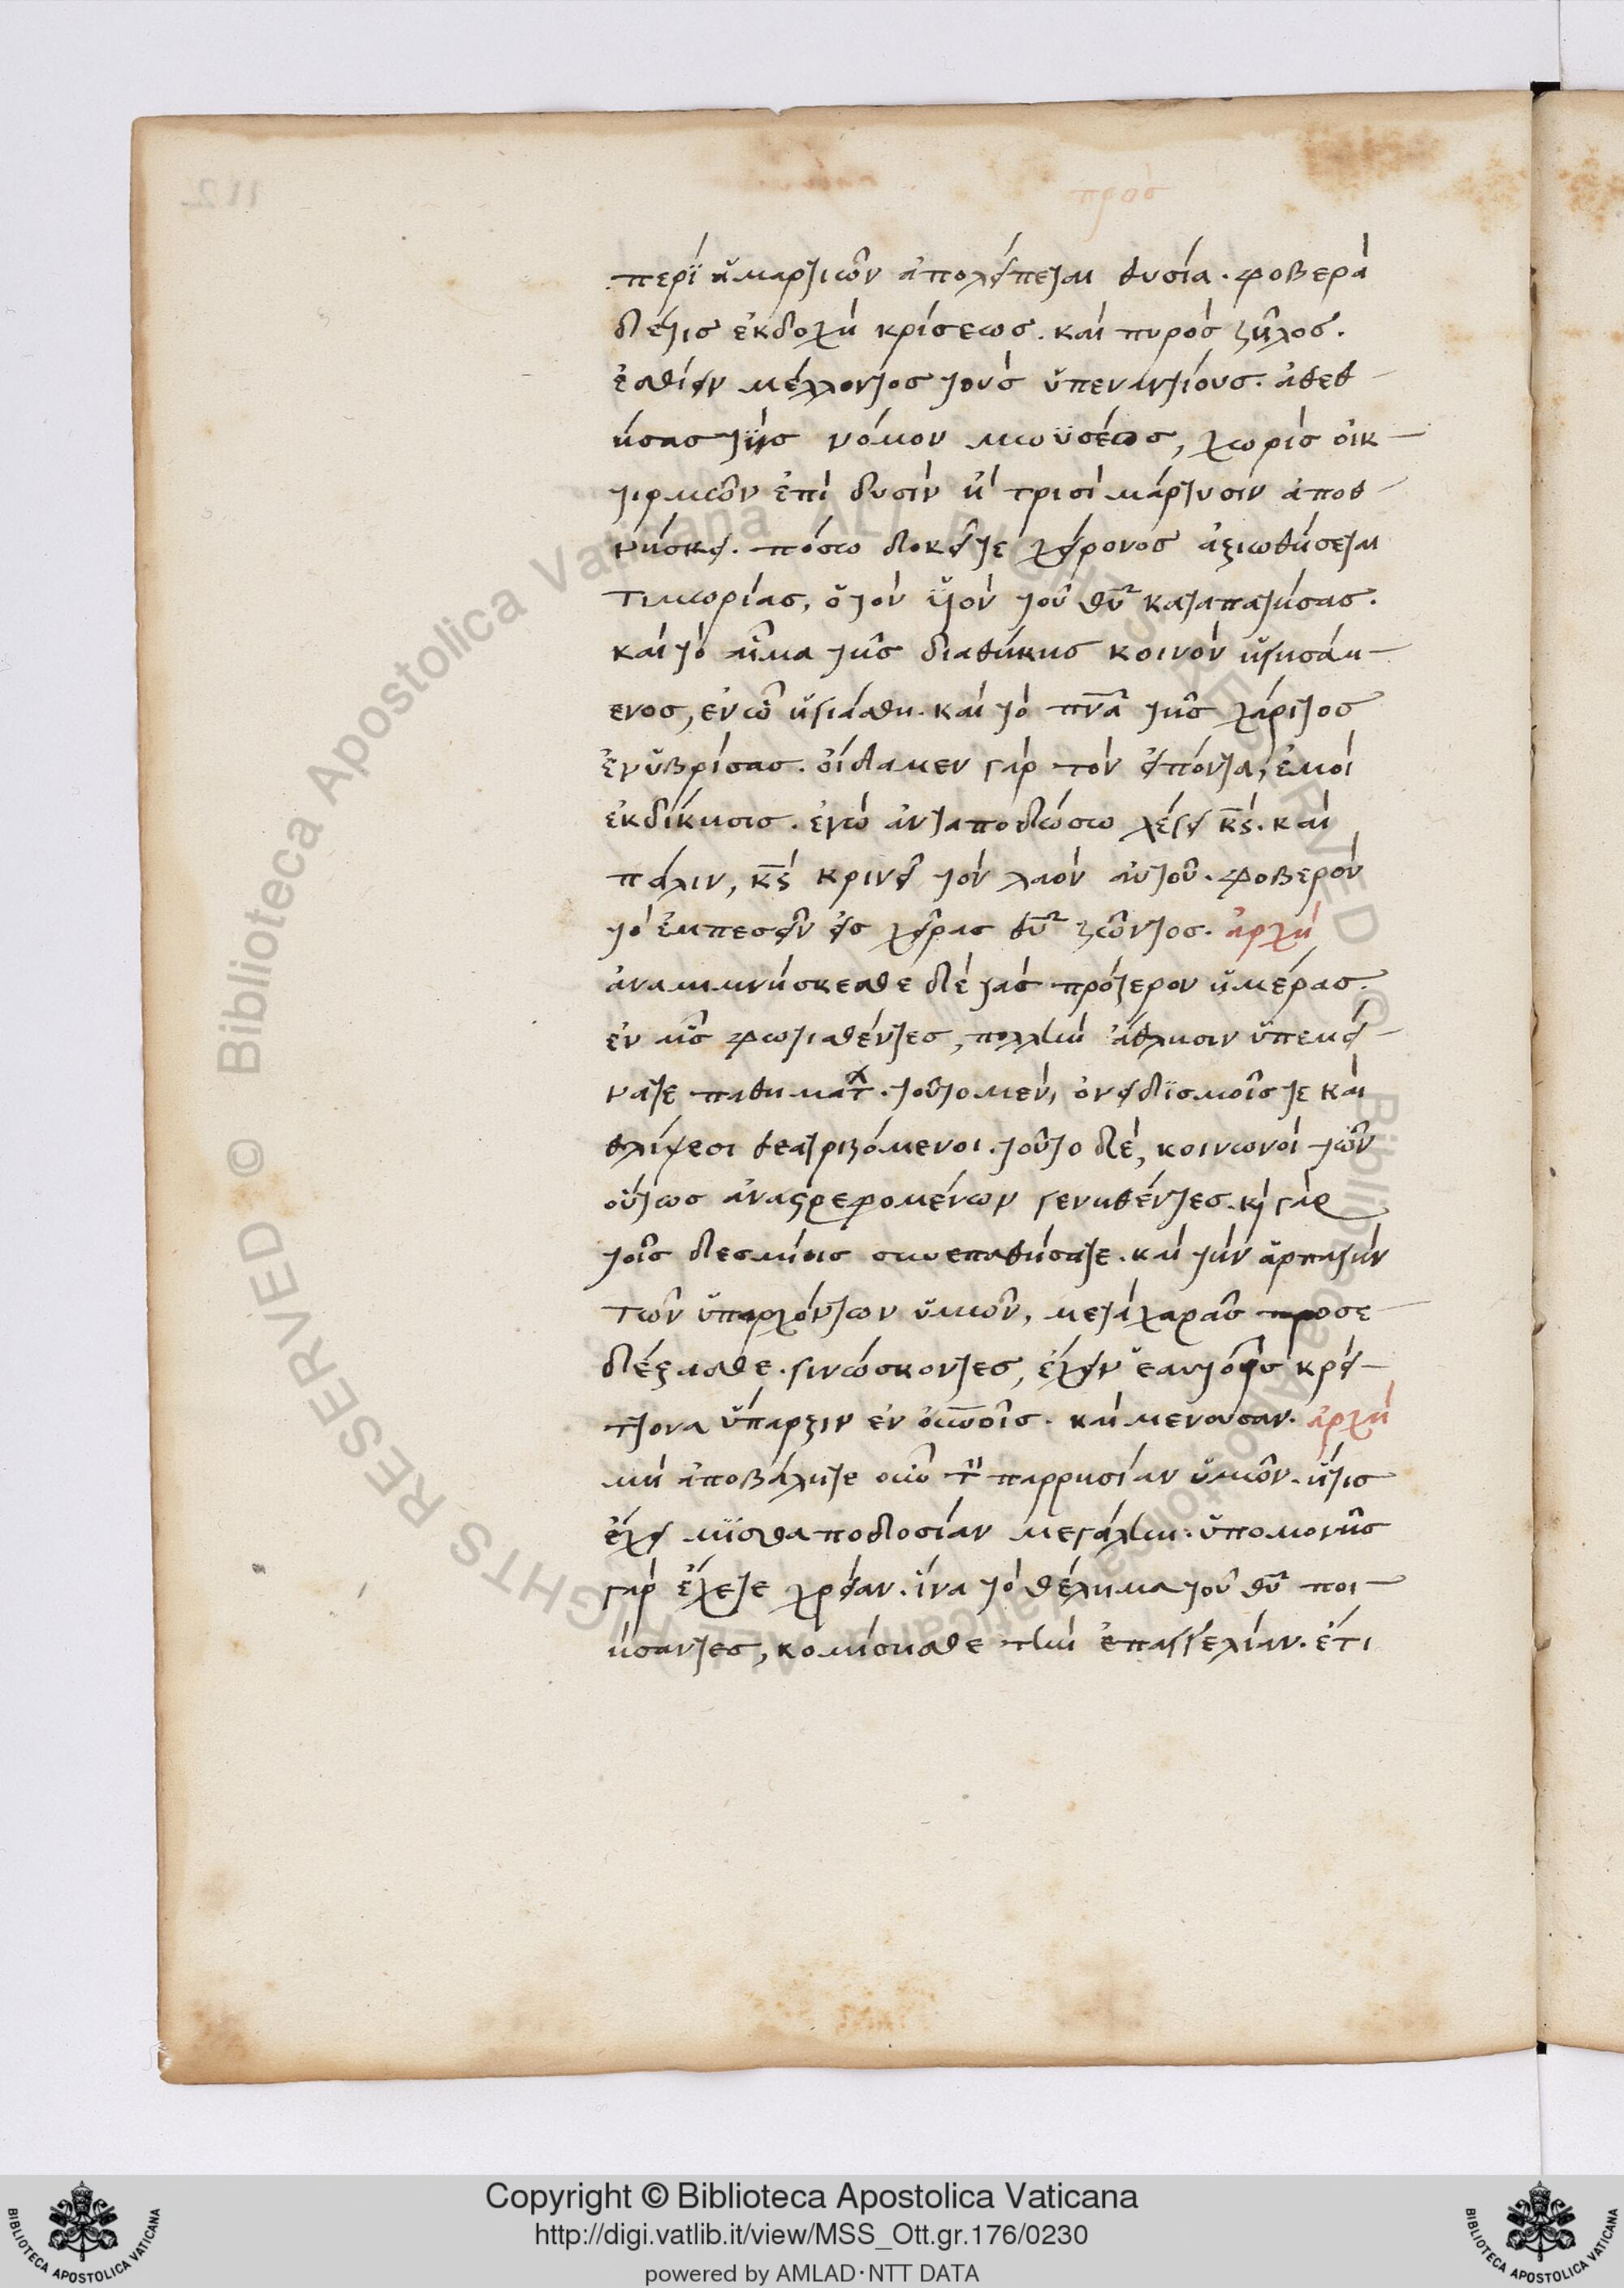 προσ
περὶ ἁμαρτιῶν ἀπολείπεται θυσία. φοβερὰ
δέ τις ἐκδοχὴ κρίσεως. καὶ πυρὸς ζῆλος.
ἐσθίειν μέλλοντος τοὺς ὑπεναντίους. ἀθετ
ήσας τὶς νόμον μωϋσέως, χωρὶς οἰκ
τιρμῶν ἐπὶ δυσὶν ἢ τρισὶ μάρτυσιν ἀποθ
νήσκει. πόσω δοκεῖτε χείρονος ἀξιωθήσεται
τιμωρίας, ὁ τὸν ϋἱὸν τοῦ θῦ καταπατήσας.
καὶ τὸ αἷμα τῆς διαθήκης κοινὸν ἡγησάμ
ενος, ἐν ὧ ἡγιάσθη. καὶ τὸ πνᾶ τῆς χάριτος
ἐνυβρίσας. οἴδαμεν γὰρ τὸν εἰπόντα, ἐμοὶ
ἐκδίκησις. ἐγὼ ἀνταποδώσω λέγει κς. καὶ
πάλιν, κς κρινεῖ τὸν λαὸν αὐτοῦ. φοβερὸν
τὸ ἐμπεσεῖν εἰς χεῖρας θῦ ζῶντος. ἀρχὴ
ἀναμιμνήσκεσθε δὲ τὰς πρότερον ἡμέρας.
ἐν αἷς φωτισθέντες, πολλὴν ἄθλησιν ὑπεμεί
νατε παθημάτ. τοῦτο μὲν, ὀνειδισμοῖς τε καὶ
θλίψεσι θεατριζόμενοι. τοῦτο δὲ, κοινωνοὶ τῶν
οὕτως ἀναστρεφομένων γενηθέντες. κ γὰρ
τοῖς δεσμίοις συνεπαθήσατε. καὶ τὴν ἁρπαγὴν
τῶν ὑπαρχόντων ὑμῶν, μετὰ χαρᾶς προσε
δέξασθε. γινώσκοντες, ἔχειν ἑαυτοῖς κρεί
ττονα ὕπαρξιν ἐν οὐνοῖς. καὶ μένουσαν. ἀρχὴ
μὴ ἀποβάλητε οὖν τ παρρησίαν ὑμῶν. ἥτις
ἔχει μισθαποδοσίαν μεγάλην. ὑπομονῆς
γὰρ ἔχετε χρείαν. ἵνα τὸ θέλημα τοῦ θῦ ποι
ήσαντες, κομίσησθε τὴν ἐπαγγελίαν. ἔτι
Copyright © Biblioteca Apostolica Vaticana
http://digi.vatlib.it/view/MSS_Ott.gr.176/0230
powered by AMLAD·NTT DATA